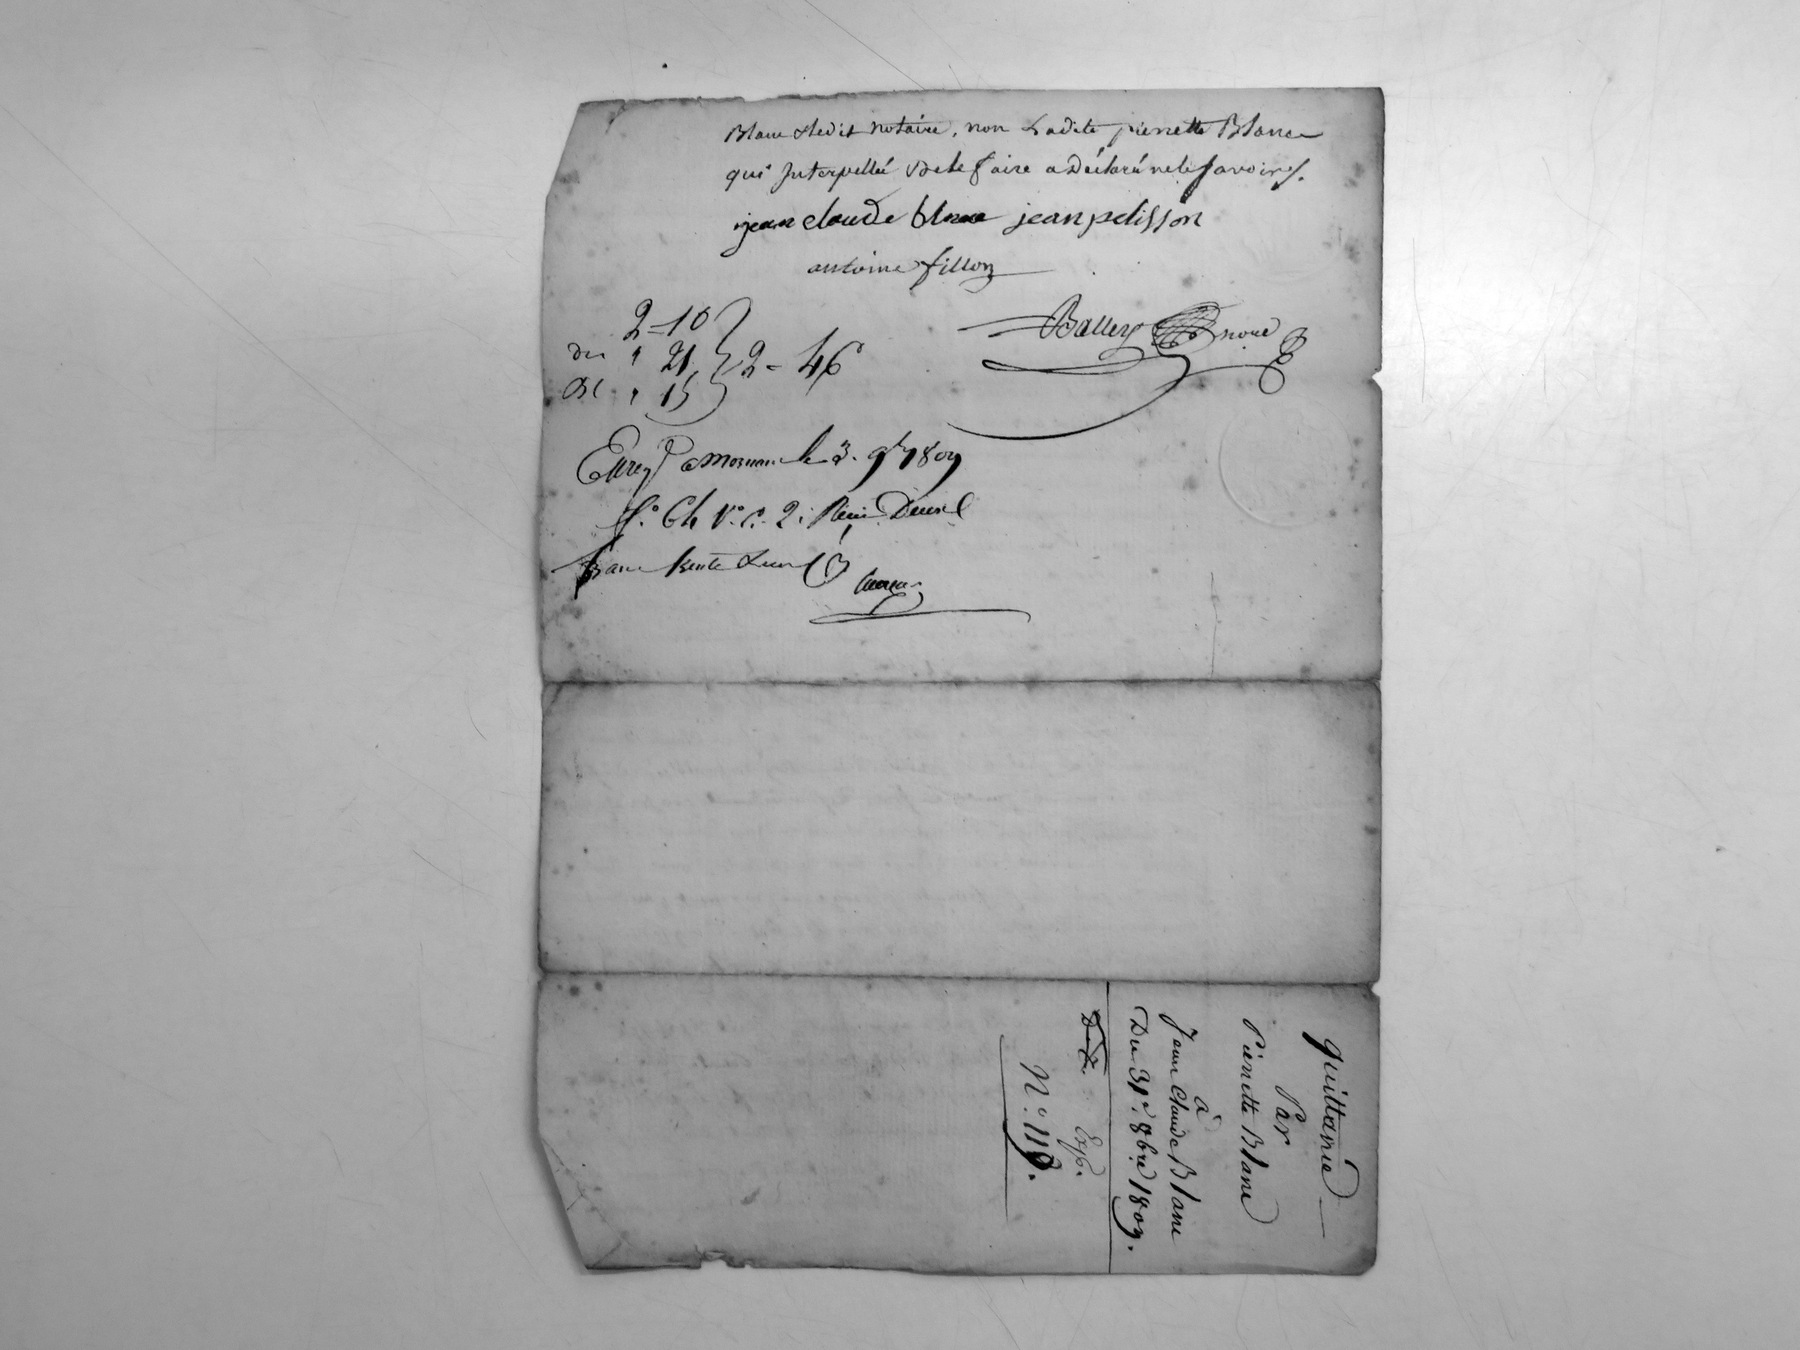 Blanc & ledit Notaire, non Ladite pierrette Blanc
qui Interpellée de le faire a Déclaré ne le savoir /.
jean claude blanc jean pelisson
antoine fillon
Ballery noire
2-10
du " 21
" 15
2-46
Enreg à Mornant le 3. 9bre 1809
f.° 64 V.° C. 2. Reçu Deux
franc trente
quittance
Par
Pierrette Blanc
à
Jean Claude Blanc
Du 31e. 8bre 1809.
Exp.
N.° 119.